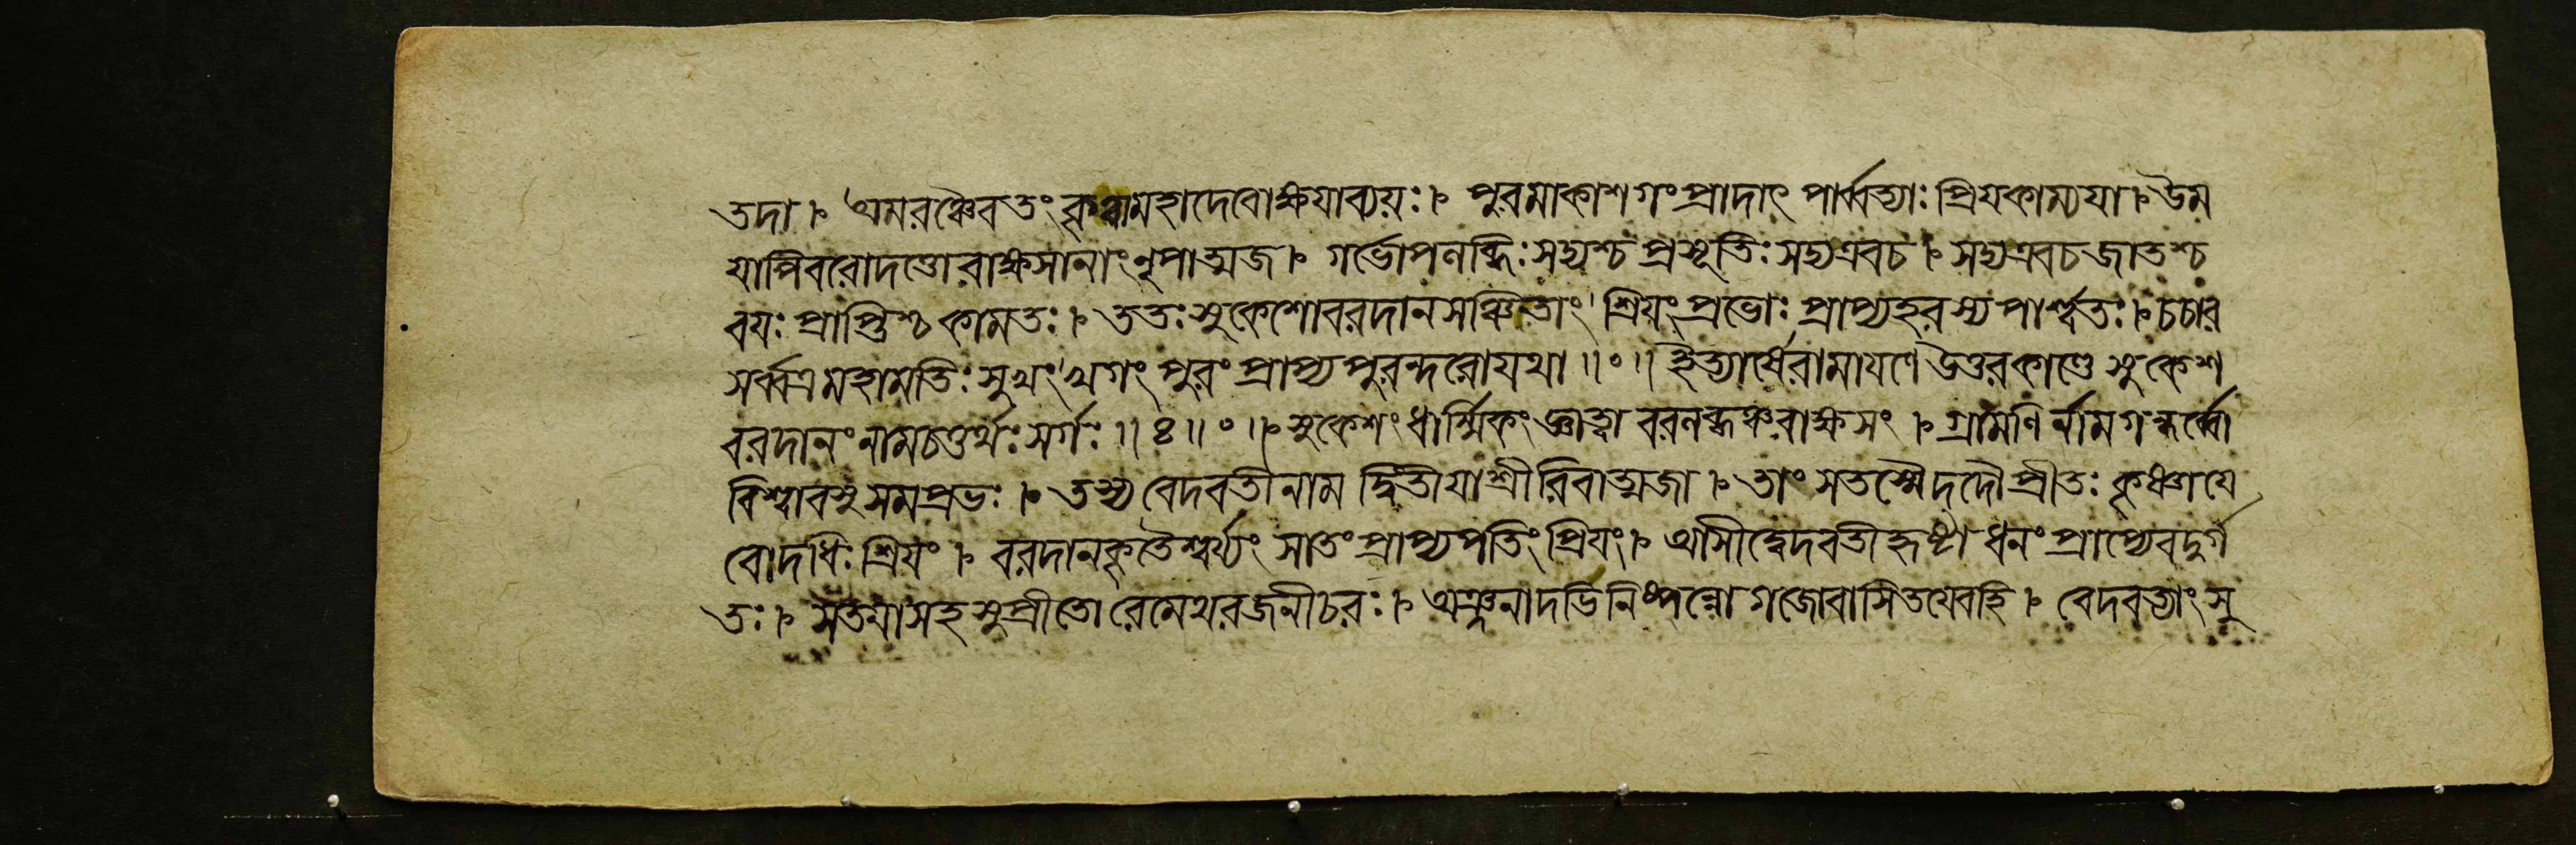 তদা । অমরঞ্চৈব তং কৃত্বা মহাদেবোক্ষযাব্যয়ঃ । পুরমাকাশগং প্রাদাৎ পার্ব্বত্যাঃ প্রিযকাম্যযা । উম
যাপি বরোদত্তো রাক্ষসানাং নৃপাত্মজ । গর্ভোপলব্ধিঃ সদ্যশ্চ প্রসূতিঃ সদ্যএবচ । সদ্যএবচ জাতশ্চ
বযঃ প্রাপ্তিশ্চ কামতঃ । ততঃ সুকেশোবরদানসঞ্চিতাং শ্রিযংপ্রভোঃ প্রাপ্যহরস্য পার্শ্বতঃ । চচার
সর্ব্বত্র মহামতিঃ সুখং খগং পুরং প্রাপ্য পুরন্দরোযথা ॥॰॥ ইত্যার্ষেরামাযণে উত্তরকাণ্ডে সুকেশ
বরদানং নামচতুর্থঃ সর্গঃ ॥ ৪ ॥॰॥ সুকেশং ধার্ম্মিকং জ্ঞাত্বা বরলব্ধঞ্চরাক্ষসং । গ্রামণির্নামগন্ধর্ব্বো
বিশ্বাবসুসমপ্রভঃ । তস্য বেদবতীনাম দ্বিতীযাশ্রীরিবাত্মজা । তাং সতস্মৈদদৌ প্রীতঃ কৃষ্ণাযে
বোদধিঃ শ্রিযং । বরদানকৃতৈশ্বর্য্যং সাতং প্রাপ্য পতিং প্রিযং । আসীদ্বেদবতীহৃষ্টা ধনং প্রাপ্যেবদুর্গ
তঃ । সতযাসহ সুপ্রীতো রেমেথরজনীচরঃ । অঞ্জনাদভিনিষ্পন্নো গজোবাসিতযেবহি । বেদবত্যাং সু